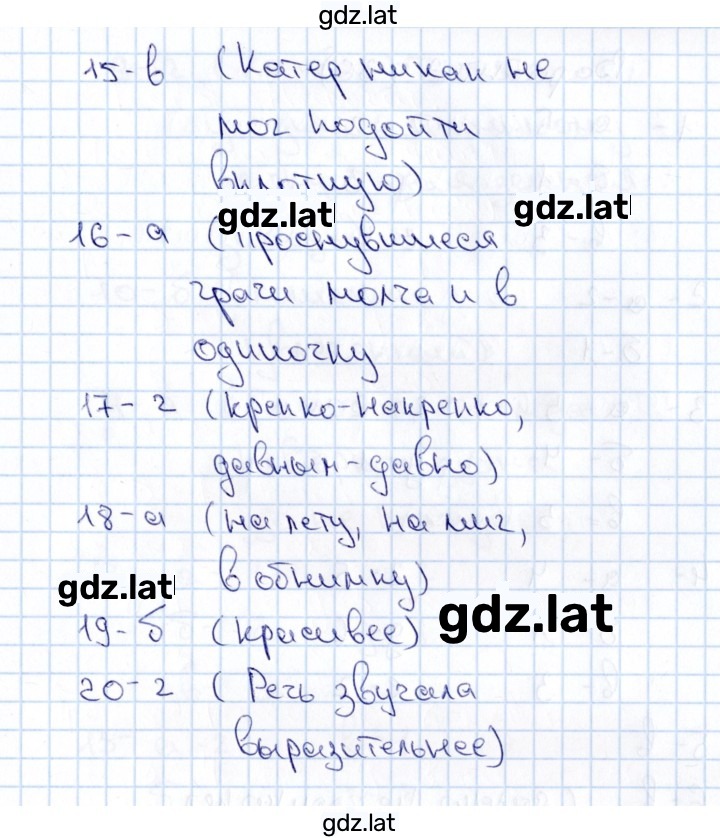 gdz.lat
15-в (Катер никак не
мог подойти
вплотную)
gdz.lat gdz.lat
16-а (Проснувшиеся
грачи молча и в
одиночку
17-г (крепко-накрепко,
давным-давно)
18-а (на лету, на миг,
в обнимку)
gdz.lat
19-б (красивее)
gdz.lat
20-г (Речь звучала
выразительнее)
gdz.lat